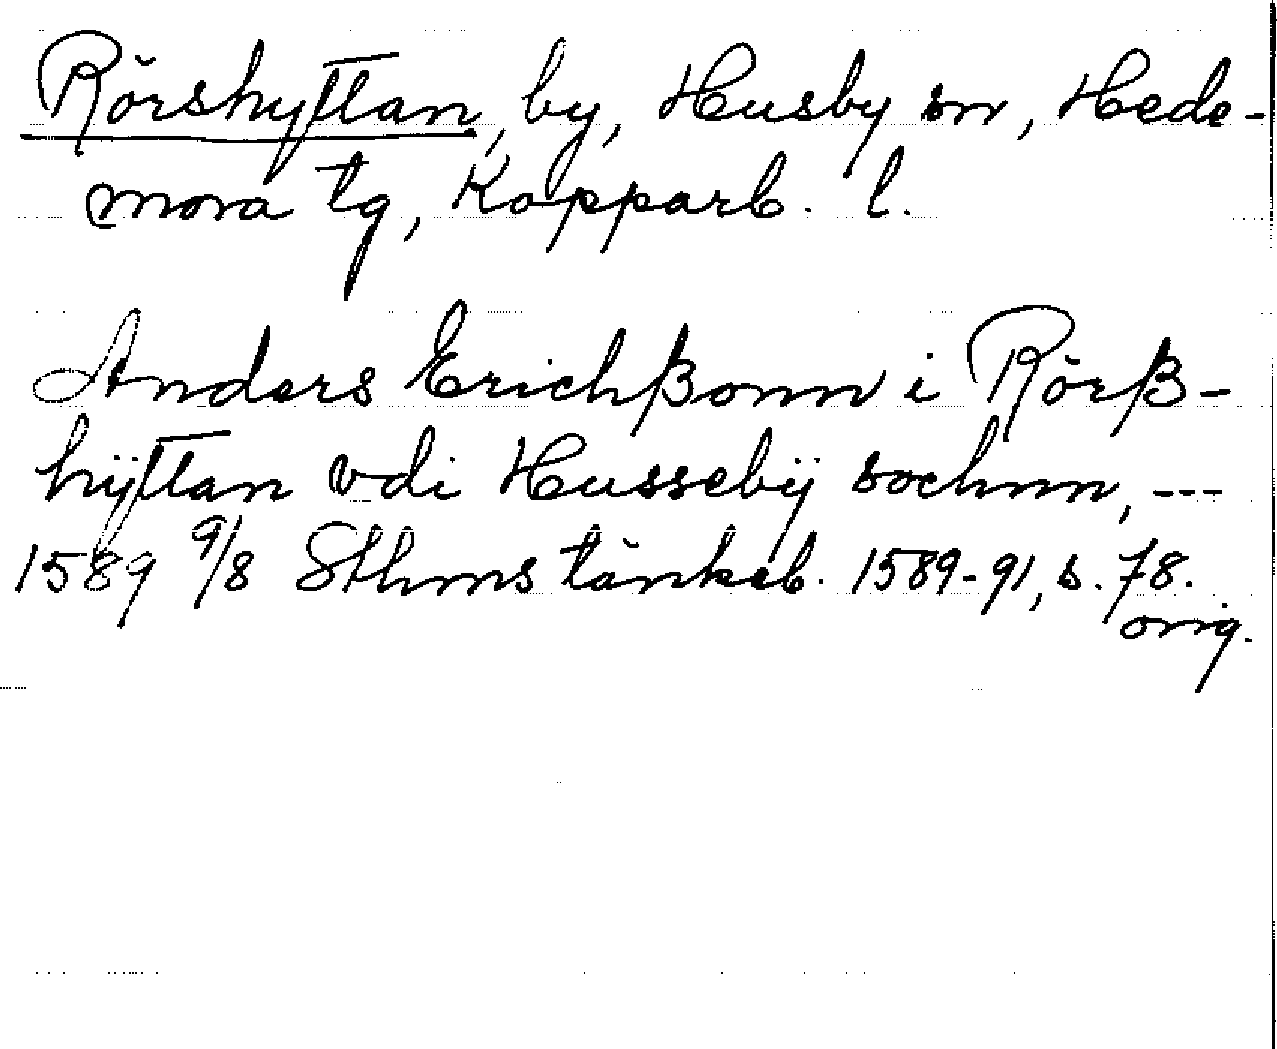 Rörshyttan, by, Husby sn, Hede-
mora tg, Kopparb. l.
Anders Erichßonn i Rörß-
hÿttan vdi Hussebÿ sochnn, ---
1589 9/8 Sthms tänkeb. 1589-91, s. 78.
orig.